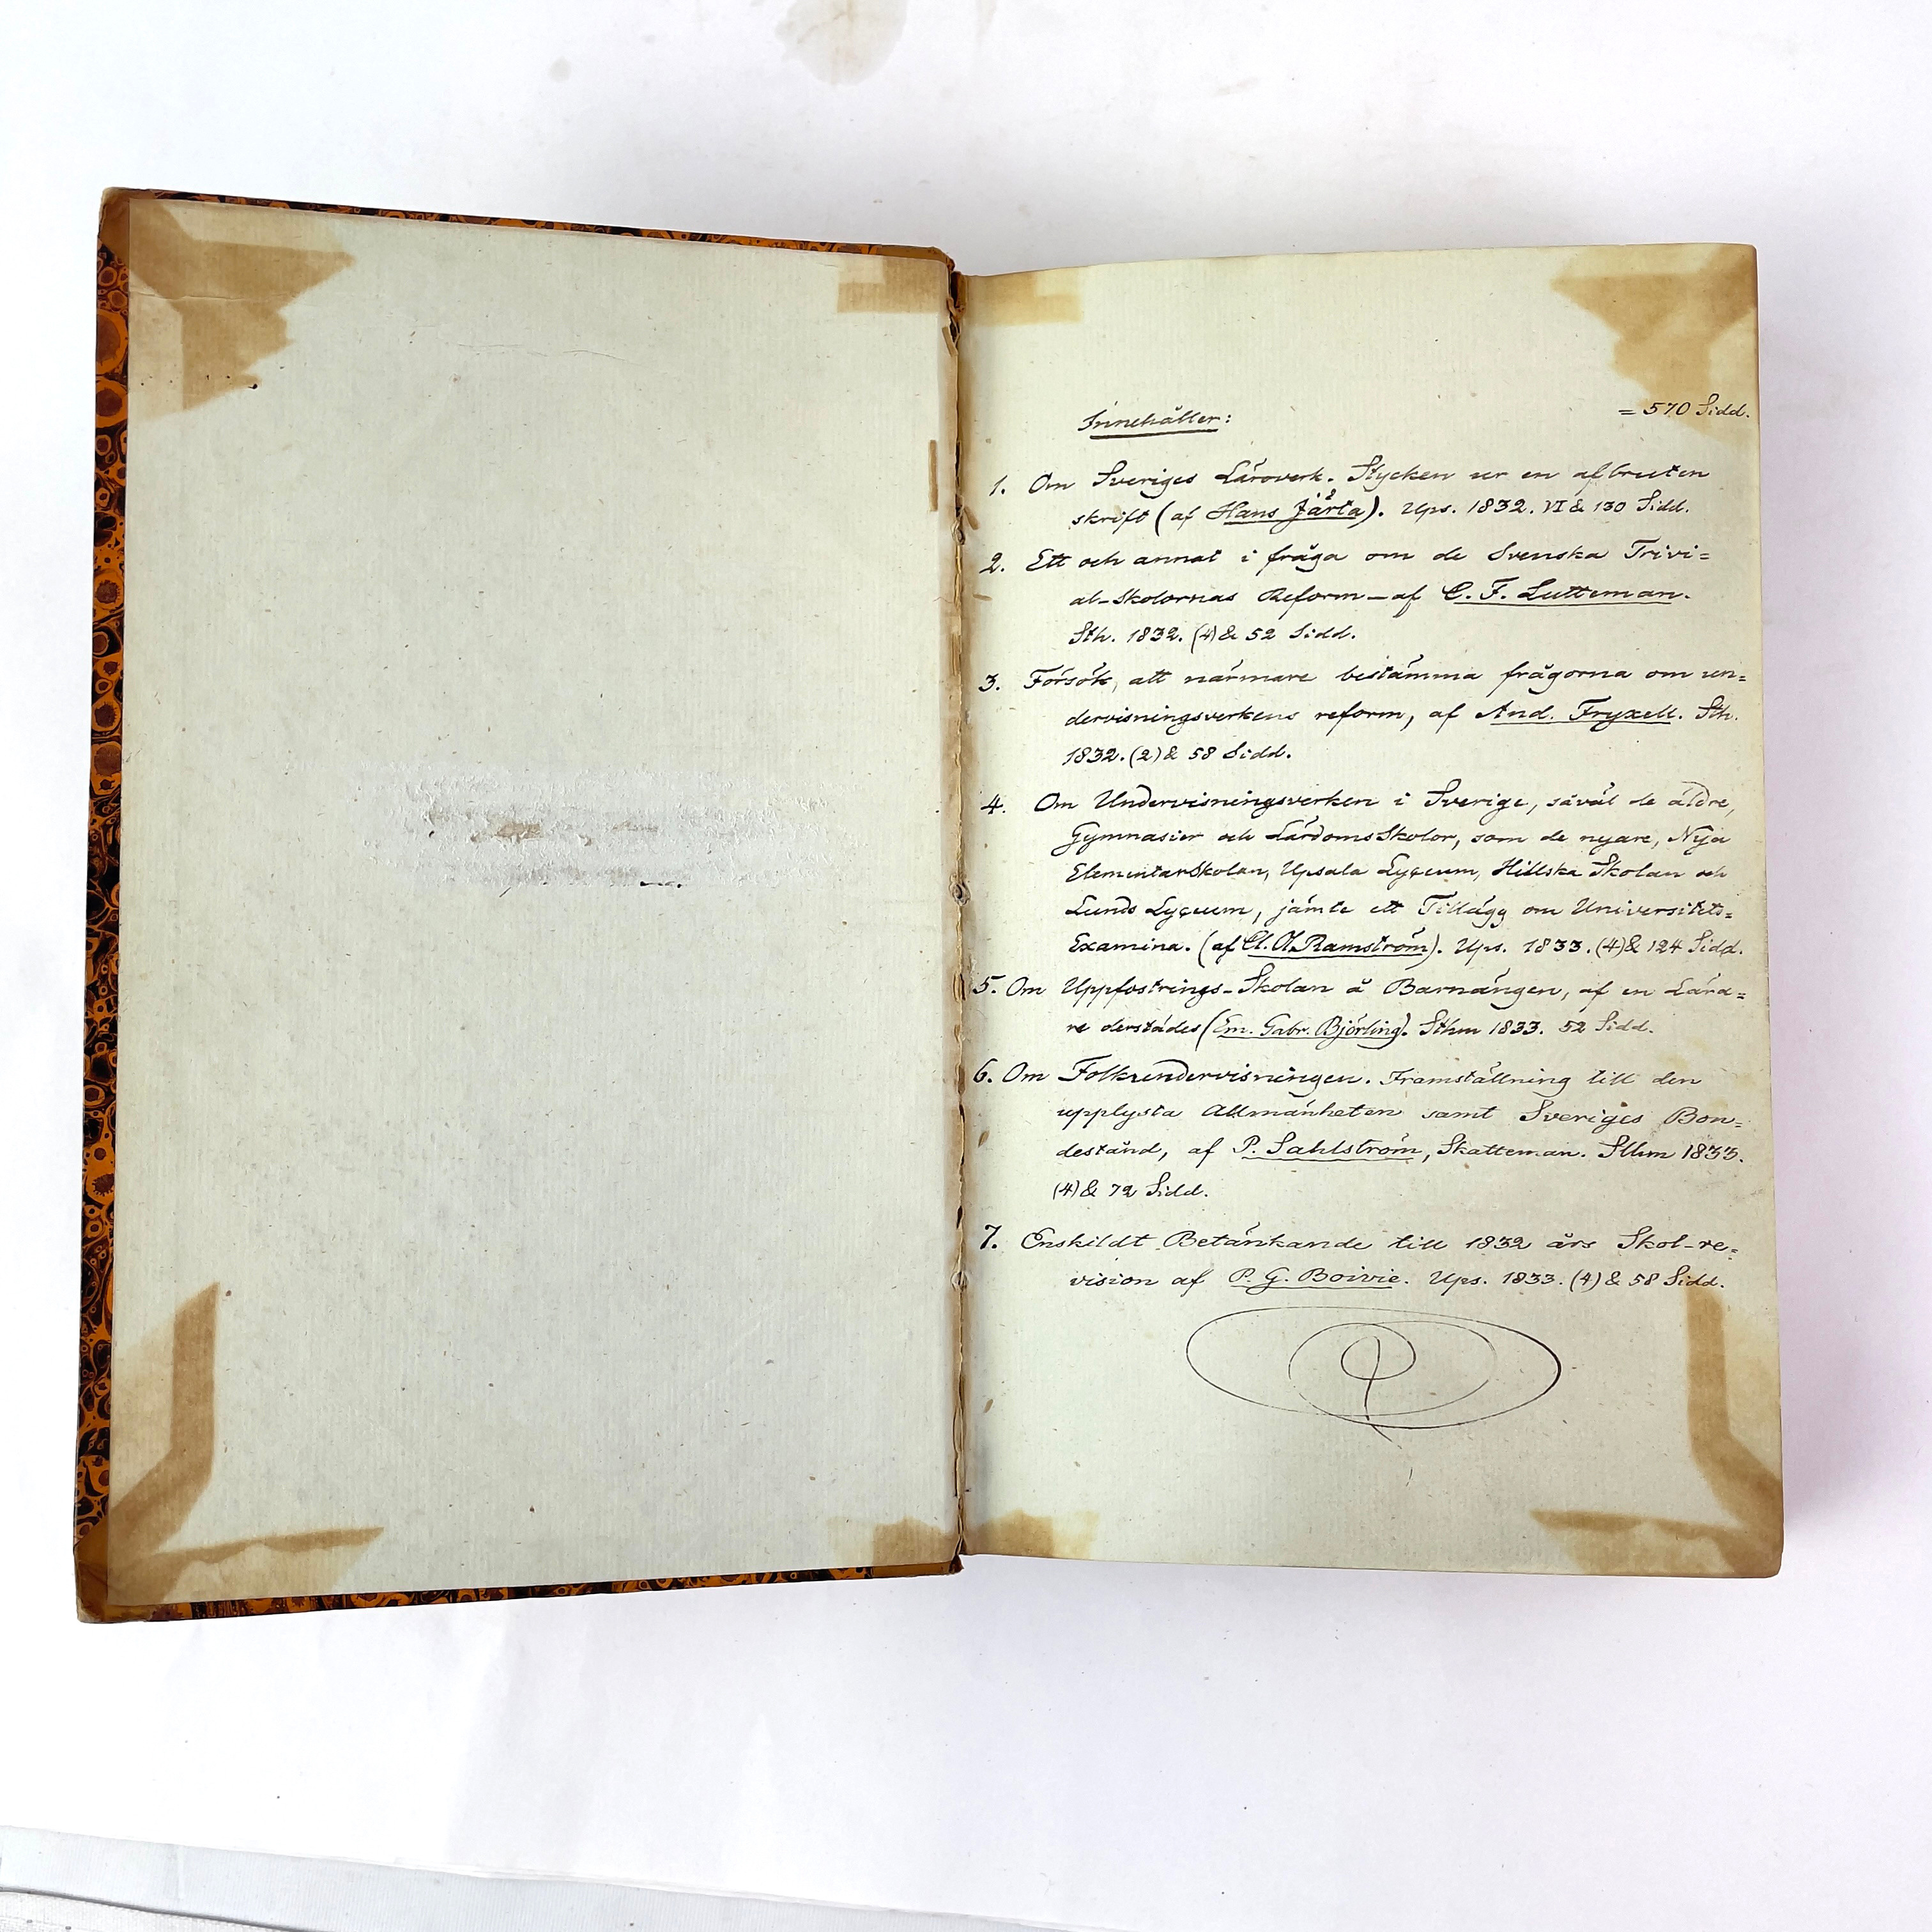 Innehåller:
= 570 Sidd.
1. Om Sveriges Läroverk. Stycken ur en afbruten
skrift (af Hans Järta). Ups. 1832. VI & 130 Sidd.
2. Ett och annat i fråga om de Svenska Trivi=
al-Skolornas Reform—af C. F. Lutteman.
Sth. 1832. (4) & 52 Sidd.
3. Försök, att närmare bestämma frågorna om un=
dervisningsverkens reform, af And. Fryxell. Sth.
1832. (2) & 58 Sidd.
4. Om Undervisningsverken i Sverige, såväl de äldre,
Gymnasier och LärdomsSkolor, som de nyare, Nya
ElementarSkolan, Upsala Lyçeum, Hillska Skolan och
Lunds Lyçeum, jämte ett Tillägg om Universitets=
Examina. (af Cl. O. Ramström). Ups. 1833. (4) & 124 Sidd.
5. Om Uppfostrings-Skolan å Barnängen, af en Lära=
re derstädes (Em. Gabr. Björling). Sthm 1833. 52 Sidd.
6. Om Folkundervisningen. Framställning till den
upplysta Allmänheten samt Sveriges Bon=
destånd, af P. Sahlström, Skatteman. Sthm 1833.
(4) & 72 Sidd.
7. Enskildt Betänkande till 1832 års Skol-re=
vision af P. G. Boivie. Ups. 1833. (4) & 58 Sidd.